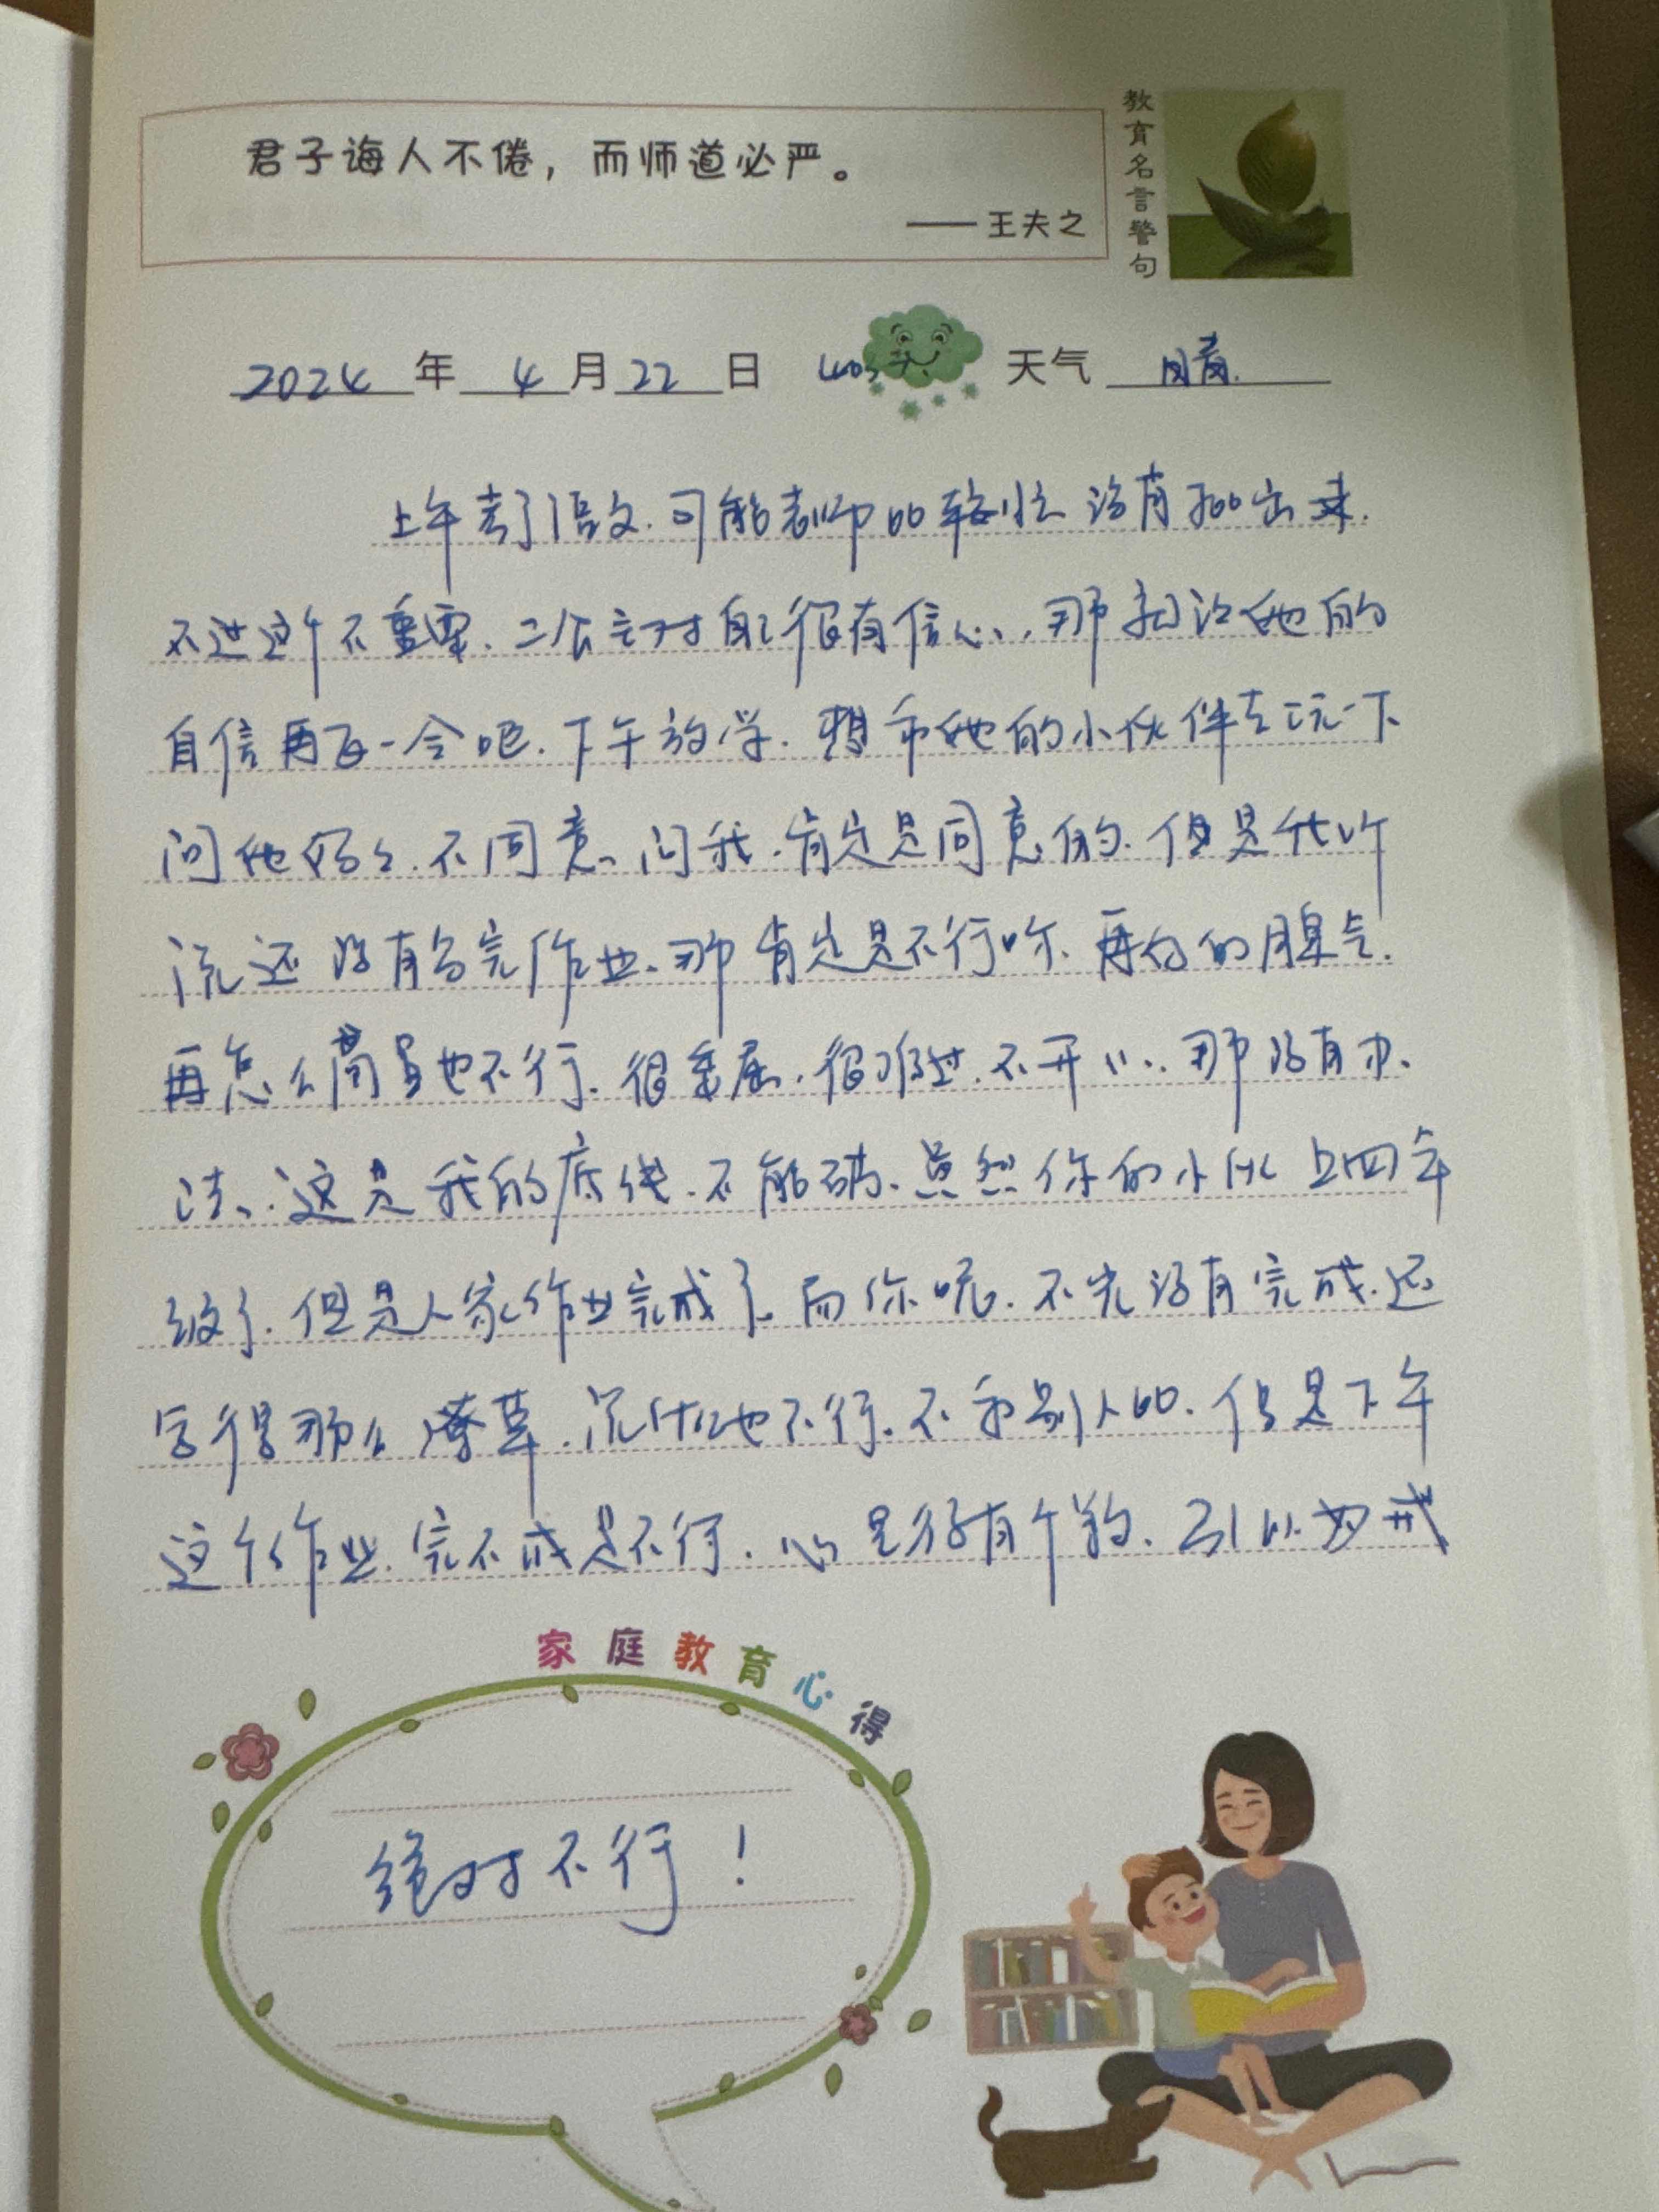 君子诲人不倦，而师道必严。
——王夫之
教育名言警句
2024年4月22日 403天 天气 晴
上午考了语文.可能老师比较忙没有批出来.
不过这个不重要.二公主对自己很有信心.那就让她的
自信再飞一会吧.下午放学.想和她的小伙伴去玩一下
问她妈妈.不同意.问我.肯定是同意的.但是她
说还没有写完作业.那肯定是不行呀.再好的脾气.
再怎么商量也不行.很委屈.很难过.不开心.那没有办
法.这是我的底线.不能破.虽然你的小伙上四年
级了.但是人家作业完成了.而你呢.不光没有完成.还
写得那么潦草.说什么也不行.不和别人比.但是下午
这个作业.完不成是不行.心里得有个数.引以为戒
家庭教育心得
绝对不行！